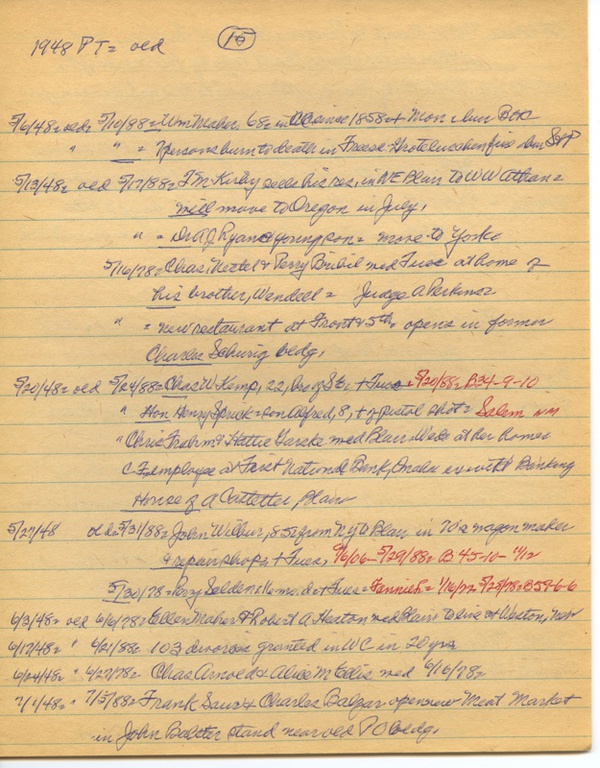 1948 PT = old 15
5/6/48 = old = 5/10/88 = Wm Maher, 68 = in WC since 1858 + Mon =
" " = 7 persons burn to death in Hotel when fire
5/13/48 = old 5/17/88 = J M Kirby sells his res, in NE Blair to W W
will move to Oregon in July,
" = Dr A J Ryan & young son = move to York =
5/16/78 = Chas, & Perry med Tues at home of
his brother, Wendell = Judge A Perkins =
" = new restaurant at Front & 5th, opens in former
Charles Schurig bldg,
5/20/48 = old 5/24/88 = Chas W Kemp, 22, + Tues = 5/20/88 = B34-9-10
" Hon Henry = son Alfred, 8, + of pistol shot = Salem
" Chris & Hattie med Blair Weds at her home =
C F employee at First National Bank, Omaha Banking
House of A Castetter, Blair
5/27/48 old = 5/31/88 = John Wilbur, 85 = from NY to Blair in 70's wagon maker
& repair shop = + Tues, 9/6/06 - 5/29/88 = B 45-10- 1/12
5/30/78 = Perry Selden's + Tues = Fannie = 1/16/72 - 5/28/78 = B59-6-6
6/3/48 = old 6/6/78 = Ellen Maher & Robert A Heston med Blair to live at Weston,
6/17/48 = " 6/21/88 = 103 divorces granted in WC in 20 yrs
6/24/48 = " 6/27/78 = Chas Arnold & Alice M Ellis med 6/16/78 =
7/1/48 = " 7/5/88 = Frank & Charles Balzar open new Meat Market
in John stand near old PO bldg,